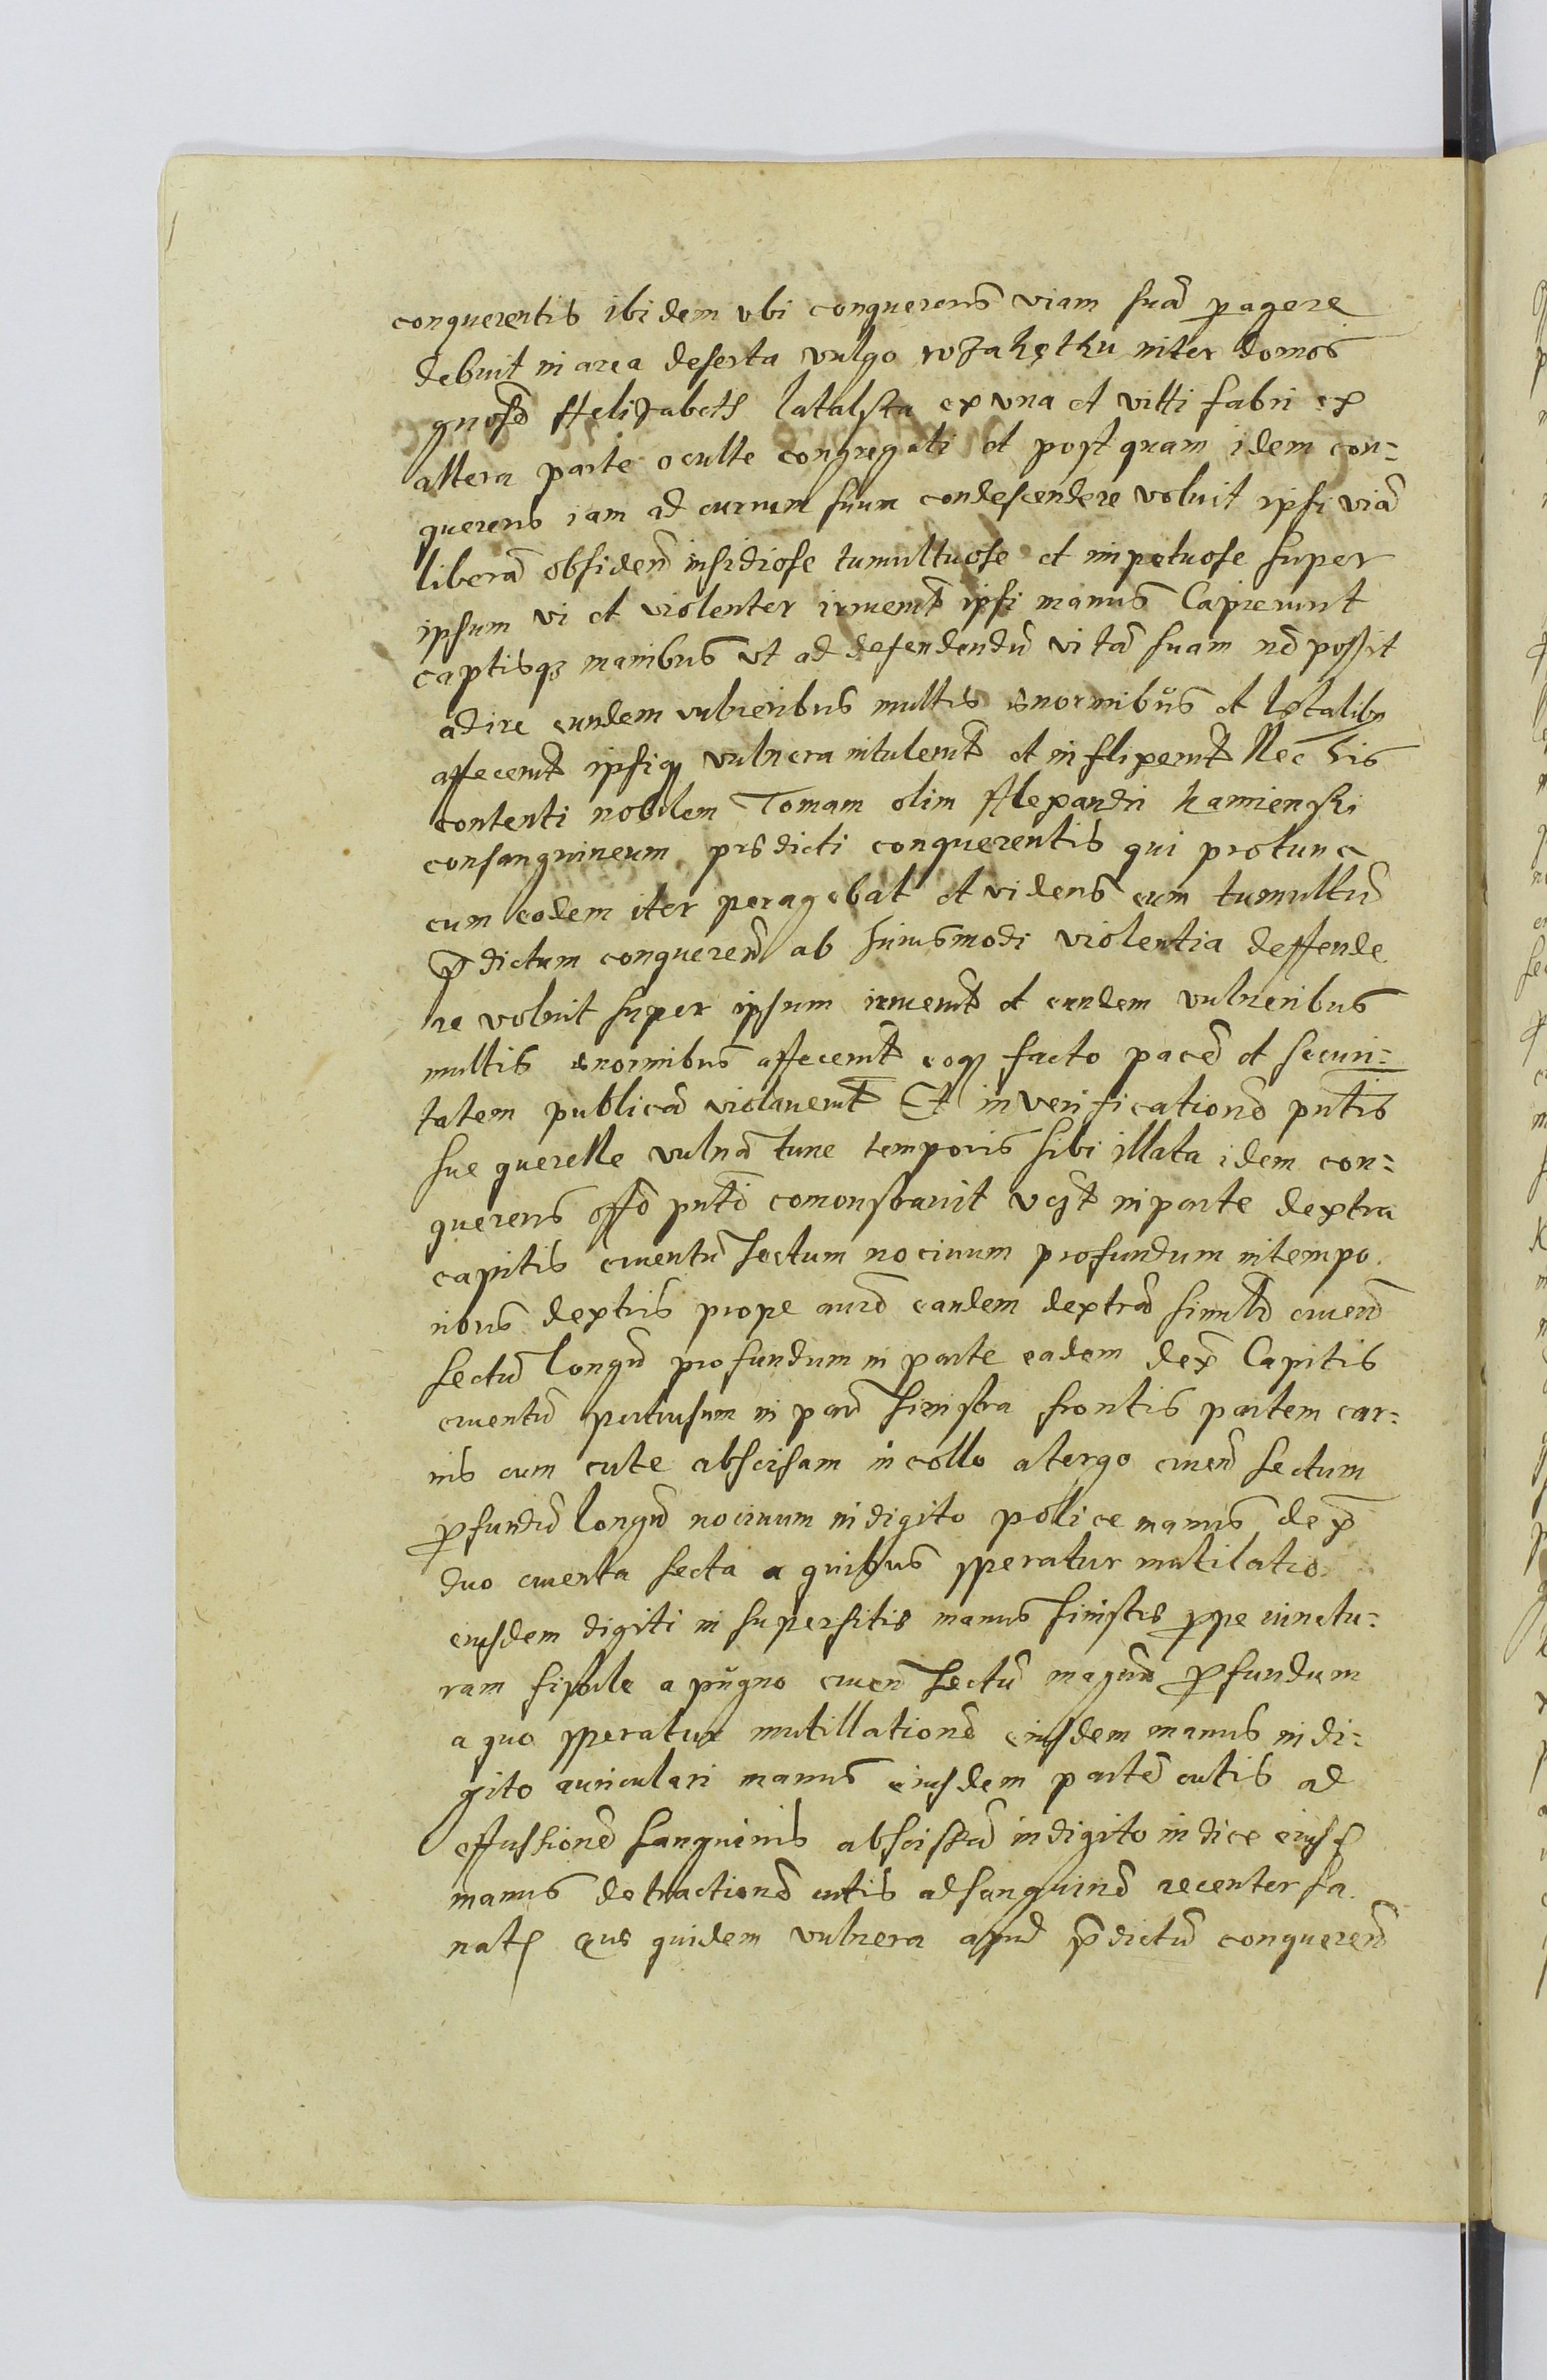 conquerentis ibidem vbi conquerens viam suā ꝑagere
debuit in area deserta vulgo w zakątku inter domos
gnosę Helizabeth latalska ex vna et vitti fabri ex
altera parte oculte congregati et postquam idem con=
querens iam ad currum suum condescendere voluit ipsi viā
liberā obsideñ insidiose tumultuose et impetuose super
ipsum vi et violenter irruerūt ipsi manus Capierunt
captisqꝫ manibus vt ad defendendū vitā suam nō possit
adire eundem vulneribus multis enormibus et letalibꝯ
affecerūt ipsiqꝫ vulnera intulerūt et inflixerūt Nec his
contenti nobilem Tomam olim Alexandri Kamienski
consanguineum predicti conquerentis qui protunc
cum eodem iter peragebat et videns eum tumultū
p̄dictum conquereñ ab huiusmodi violentia deffende
re voluit super ipsum irruerūt et eundem vulneribus
multis enormibus affecerūt eoqꝫ facto pacē et securi=
tatem publicā violauerūt Et in verificationē pn̄tis
sue querelle vulnā tunc temporis sibi illata idem con=
querens offō pn̄ti comonstrauit vꝫt in parte dextra
capitis cruentū sectum nociuum profundum in tempo
ribus dextris prope aurē eandem dextrā simulr̄ crueñ
sectū longū profundum in parte eadem dex̄ Capitis
cruentū pertusum in par̄ sinistra frontis partem car=
nis cum cute abscisam in collo atergo crueñ sectum
ꝓfundū longū nociuum in digito police manus dex̄
duo cruenta secta a quibus speratur mutilatio
eiusdem digiti in supersitis manus sinistre ꝓpe iunctu=
ram fissile a pugno crueñ sectū magnū ꝓfundum
a quo speratur mutillationē eiusdem manus in di=
gito auriculari manus eiusdem partē cutis ad
effussionē sanguinis abscissā in digito indice eiusd
manus detractionē cutis ad sanguinē recenter sa
nat que quidem vulnera apud p̄dictū conquereñ